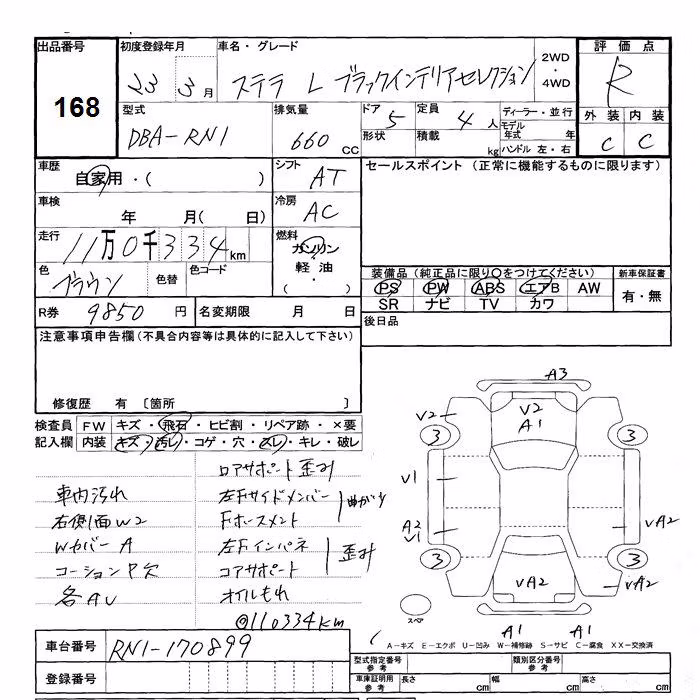 出品番号 初度登録年月 車名・グレード 2WD・4WD 評価点
168 23 3月 ステラ L ブラックインテリアセレクション R
外装 内装
C C
型式 排気量 ドア 5 定員 4人 ディーラー・並行
DBA-RN1 660 CC 形状 積載 kg モデル年式 年
ハンドル 左・右
車歴 自家用・( ) シフト AT セールスポイント (正常に機能するものに限ります)
車検 年 月( 日) 冷房 AC
走行 11万0千334km 燃料 ガソリン
軽油
( ・ )
色 ブラウン 色替 色コード
装備品 (純正品に限り○をつけてください) 新車保証書
PS PW ABS エアB AW 有・無
SR ナビ TV カワ
R券 9850円 名変期限 月 日 後日品
注意事項申告欄 (不具合内容等は具体的に記入して下さい)
修復歴 有 〔箇所 〕
検査員 FW キズ・飛石・ヒビ割・リペア跡・×要
記入欄 内装 キズ・汚レ・コゲ・穴・スレ・キレ・破レ
車内汚れ
右側面W2
Wカバー A
コーションP欠
各AU
ロアサポート歪み
左Fサイドメンバー
Fホースメント
曲がり
左Fインパネ
コアサポート
歪み
オイルもれ
@110334km
A3
V2 V2
A1
3 3
V1
A2
V1 VA2
3 3
VA2 VA2
スペア
A1 A1
A－キズ E－エクボ U－凹み W－補修跡 S－サビ C－腐食 XX－交換済
車台番号 RN1-170899
登録番号
型式指定番号 参考 類別区分番号 参考
車庫証明用 参考 長さ cm 幅 cm 高さ cm